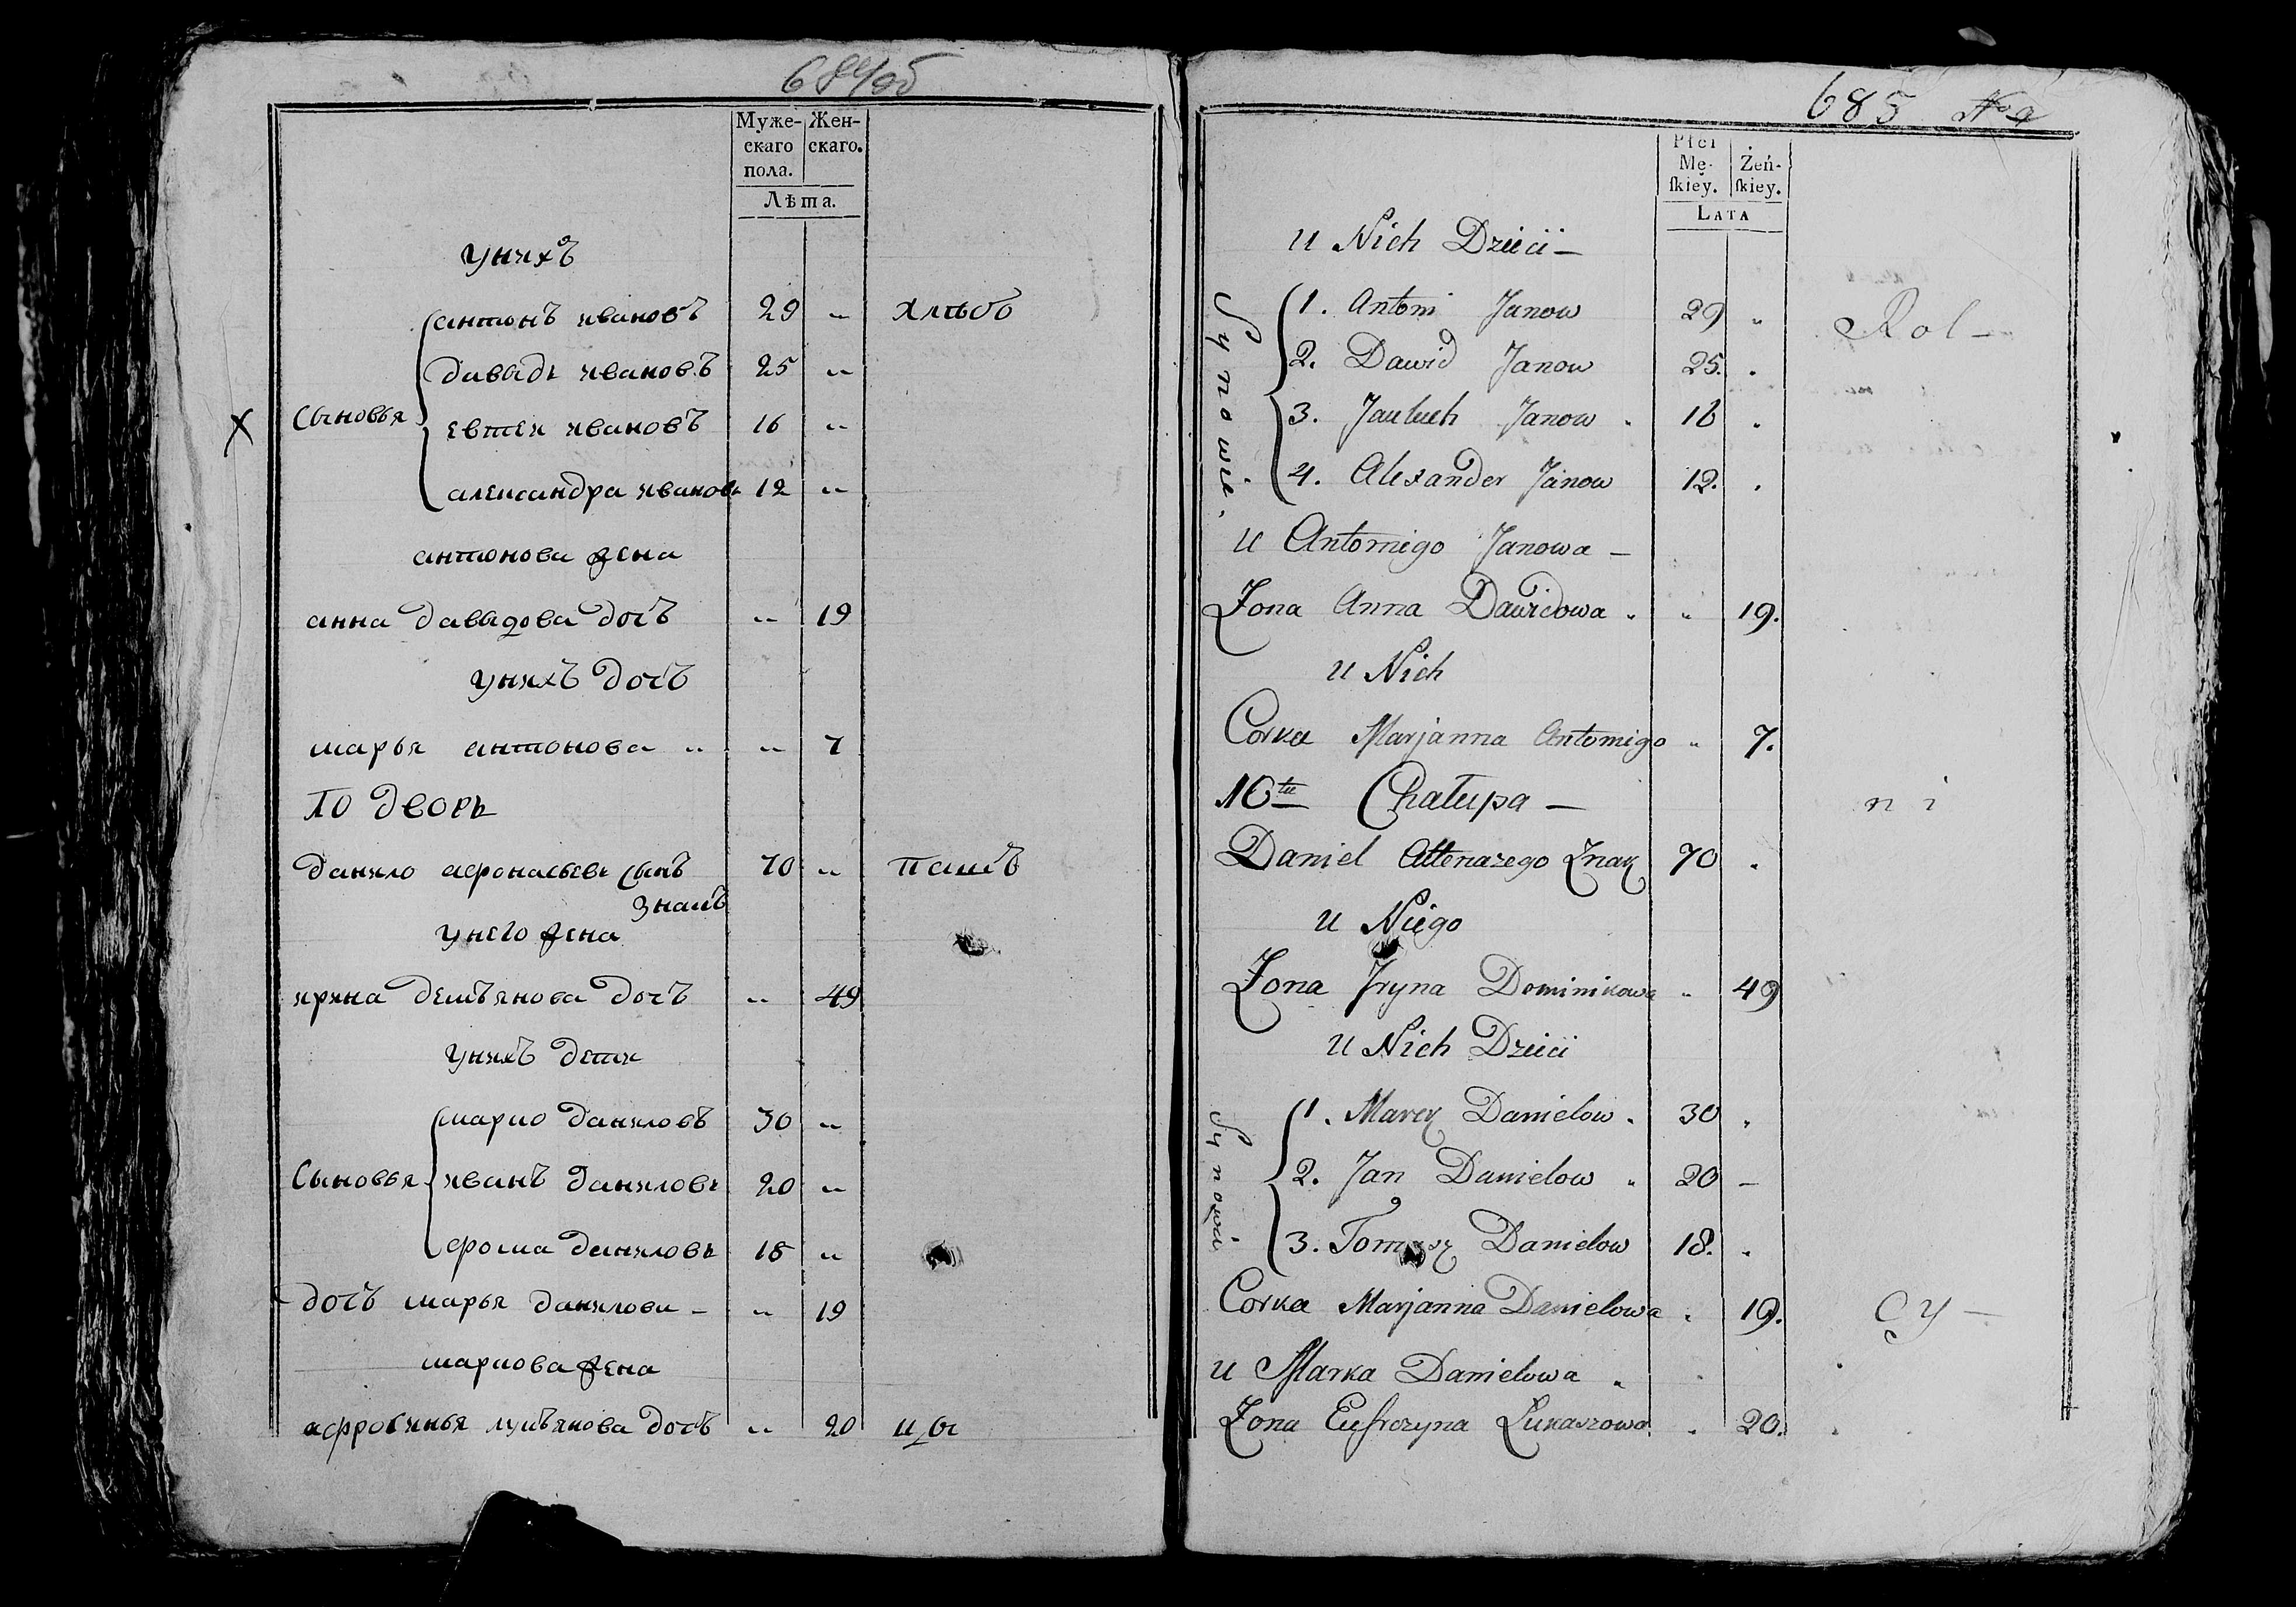 684об
Муже-
скаго
пола.
Жен-
скаго.
Лѣта.
унихъ
Сыновья
антонъ ивановъ 29 „ хлѣбо
давыдъ ивановъ 25 „
евтеи ивановъ 16 „
александра ивановъ 12 „
антонова жена
анна давыдова дочъ „ 19
унихъ дочъ
марья антонова „ „ 7
10 дворъ
данило афонасьевъ сынъ 70 „ пашъ
Знакъ
унего жена
ирина демъянова дочъ „ 49
унихъ дети
Сыновья
марко даниловъ 30 „
иванъ даниловъ 20 „
фома даниловъ 18 „
дочъ марья данилова – „ 19
маркова жена
афросинья лукъянова дочъ „ 20 цы
685
Płci
Mę-
ſkiey.
Żeń-
ſkiey.
LATA
u Nich Dzieci –
Synowie.
1. Antoni Janow 29 „ Rol –
2. Dawid Janow 25. .
3. Janow . 16 .
4. Alexander Janow 12. .
u Antoniego Janowa –
Zona Anna Dawidowa „ „ 19.
u Nich
Corka Marjanna Antoniego „ 7.
10ta Chałupa – n i
Daniel Attenazego Znak 70 .
u Niego
Zona Jryna Dominikowa „ 49
u Nich Dzieci
Synowie
1. Marek Danielow . 30 .
2. Jan Danielow „ 20 –
3. Tomasz Danielow 18. .
Corka Marjanna Danielowa . 19. cy –
u Marka Danielowa „
Zona Eufrozyna Łukaszowa . 20.